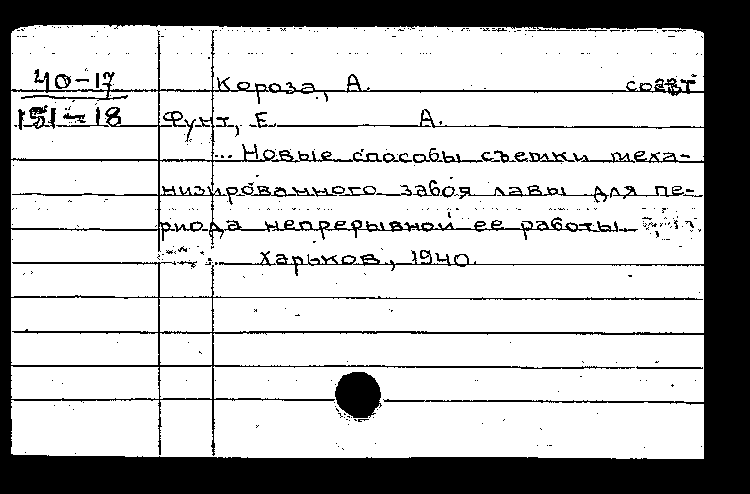 40-17 Короза, А. соавт
151-18 Фунт, Е. А.
... Новые способы съемки меха-
низированного забоя лавы для пе-
риода непрерывной ее работы.
Харьков, 1940.